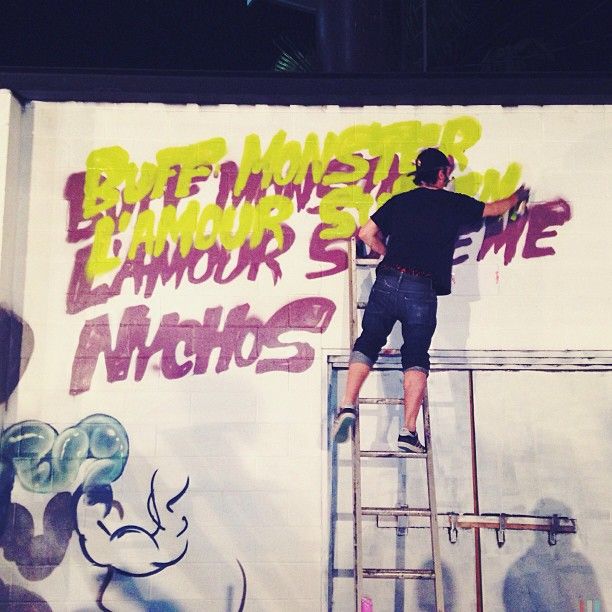 BUFF MONSTER
L'AMOUR SUPREME
NYCHOS